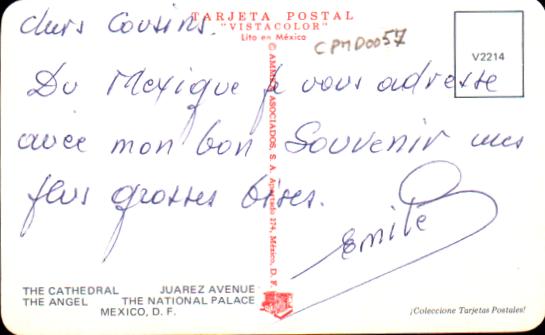 TARJETA POSTAL
"VISTACOLOR"
Lito en México
CPMD0057
V2214
chers Cousins.
Du Mexique je vous adresse
avec mon bon Souvenir mes
plus grosses bises.
Emile
© AMMEX ASOCIADOS, S. A. Apartado 274, México, D. F.
THE CATHEDRAL JUAREZ AVENUE
THE ANGEL THE NATIONAL PALACE
MEXICO, D. F.
¡Coleccione Tarjetas Postales!